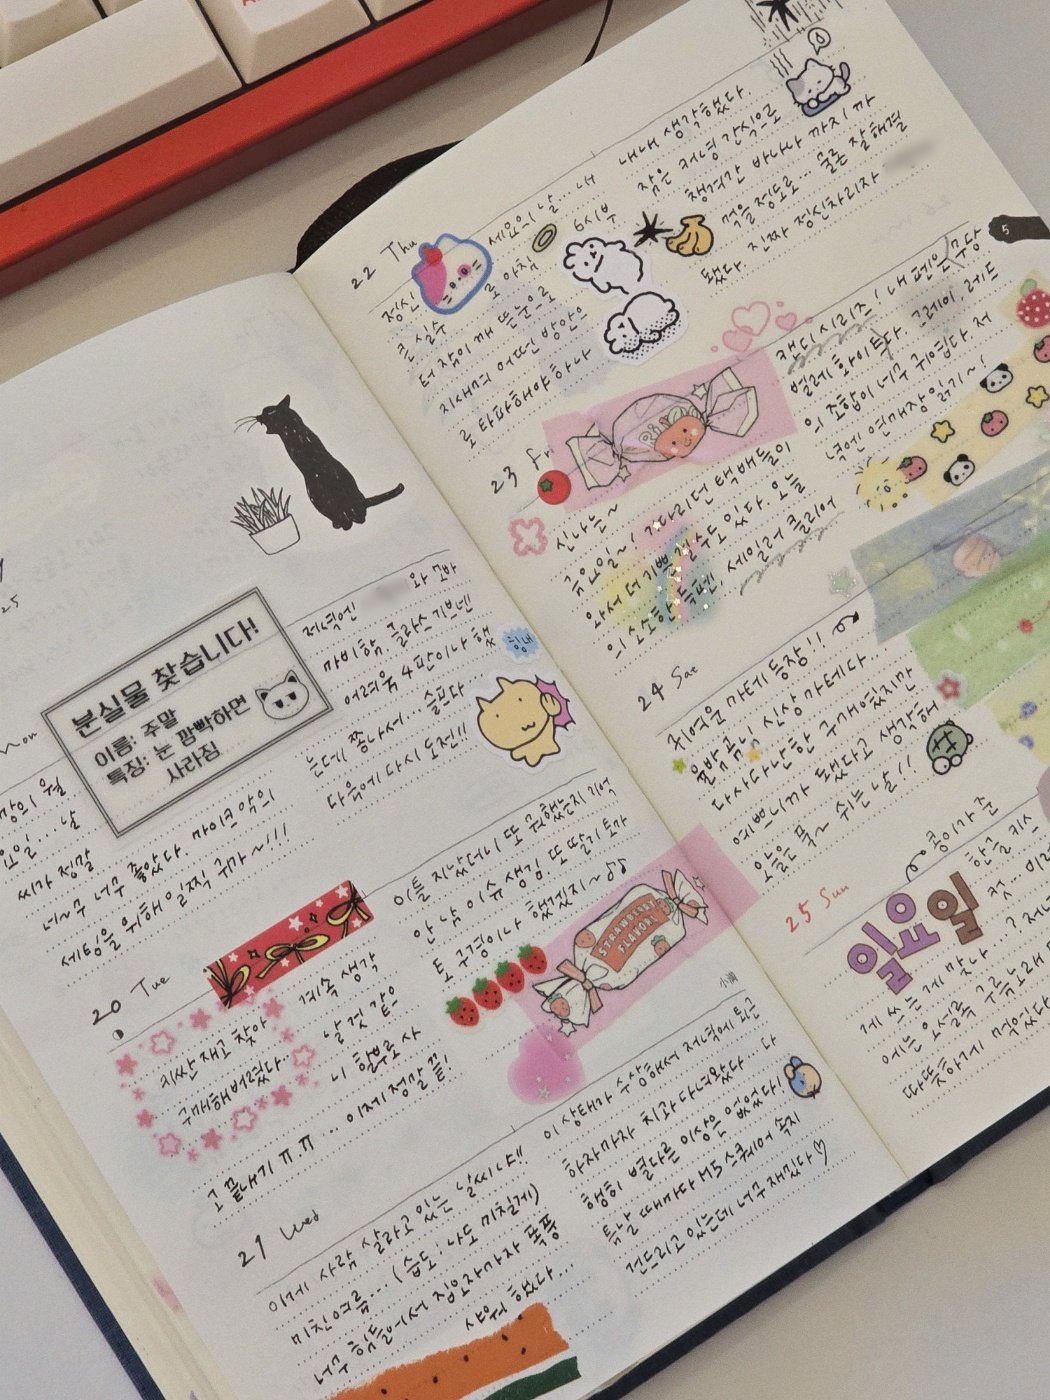 Mon
분실물 찾습니다!
이름: 주말
특징: 눈 깜빡하면
사라짐
요일... 날
씨가 정말
너~무 너무 좋았다. 마이크 악의
세팅을 위해 일찍 귀가~!!!
저녁엔 와 고바
마비함. 클라스기브넨
어려움 4판이나 했
는데 쫑나서... 슬프다
다음에 다시 도전!!
힘내
20 Tue
계속 생각
치싼 재고 찾아 날 것 같으
구매해버렸다. 니 할부로 사
고 끝내기 ㅠ.ㅠ ... 이제 정말 끝!
이틀 지났더니 또 뭐했는지 기억
안 남 이슈 생김. 또 딸기 토마
토 구경이나 했겠지~♪♪
STRAWBERRY
FLAVOR!
小滴
21 Wed
이게 사람 살라고 있는 날씨냐!!
미친여름... (습도: 나도 미칠게)
너무 힘들어서 집오자마자 폭풍
샤워 했다...
이 상태가 수상해서 저녁에 퇴근
하자마자 치과 다녀왔다... 다
행히 별다른 이상은 없었다!
특날 때마다 M5 스퀘어 속지
건드리고 있는데 너무 재밌다♡
22 Thu
세요의 날... 내
정신 로 아침 6시부
큰 실수
터 잠이 깨 뜬눈으로
지새며 어떤 방안으
로 타파해야하나
내내 생각했다.
잠은 저녕 간식으로
챙겨간 바나나 까지 까
먹을 정도로... 물론 잘 해결
됐다. 진짜 정신차리자
5
23 Fri
신나는~
금요일~! 기다리던 택배들이
와서 더 기쁠 걸 수도 있다. 오늘
의 소소한 득템, 세일러 클리어
캔디시리즈! 내 편의 구당
벌레 화이트다. 그레이 레드
의 조합이 너무 귀엽다. 저
녁에 연매장 읽기~!
24 Sat
귀여운 마테 등장!!
올밤곰님 신상 마테다...
다사다난한 구매였지만
예쁘니까 됐다고 생각해
오늘은 푹~ 쉬는 날!!
25 Sun
일요일
콩이가 준
한글 키스
컷... 이러
게 쓰는 게 맞나...? 저녁
에는 오설록 구름
따뜻하게 먹었다